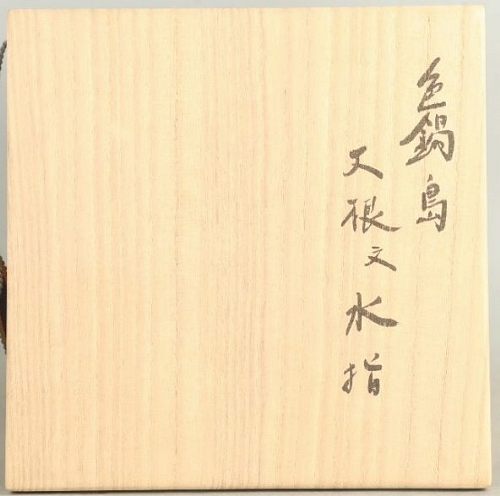 色鍋島
大根文水指